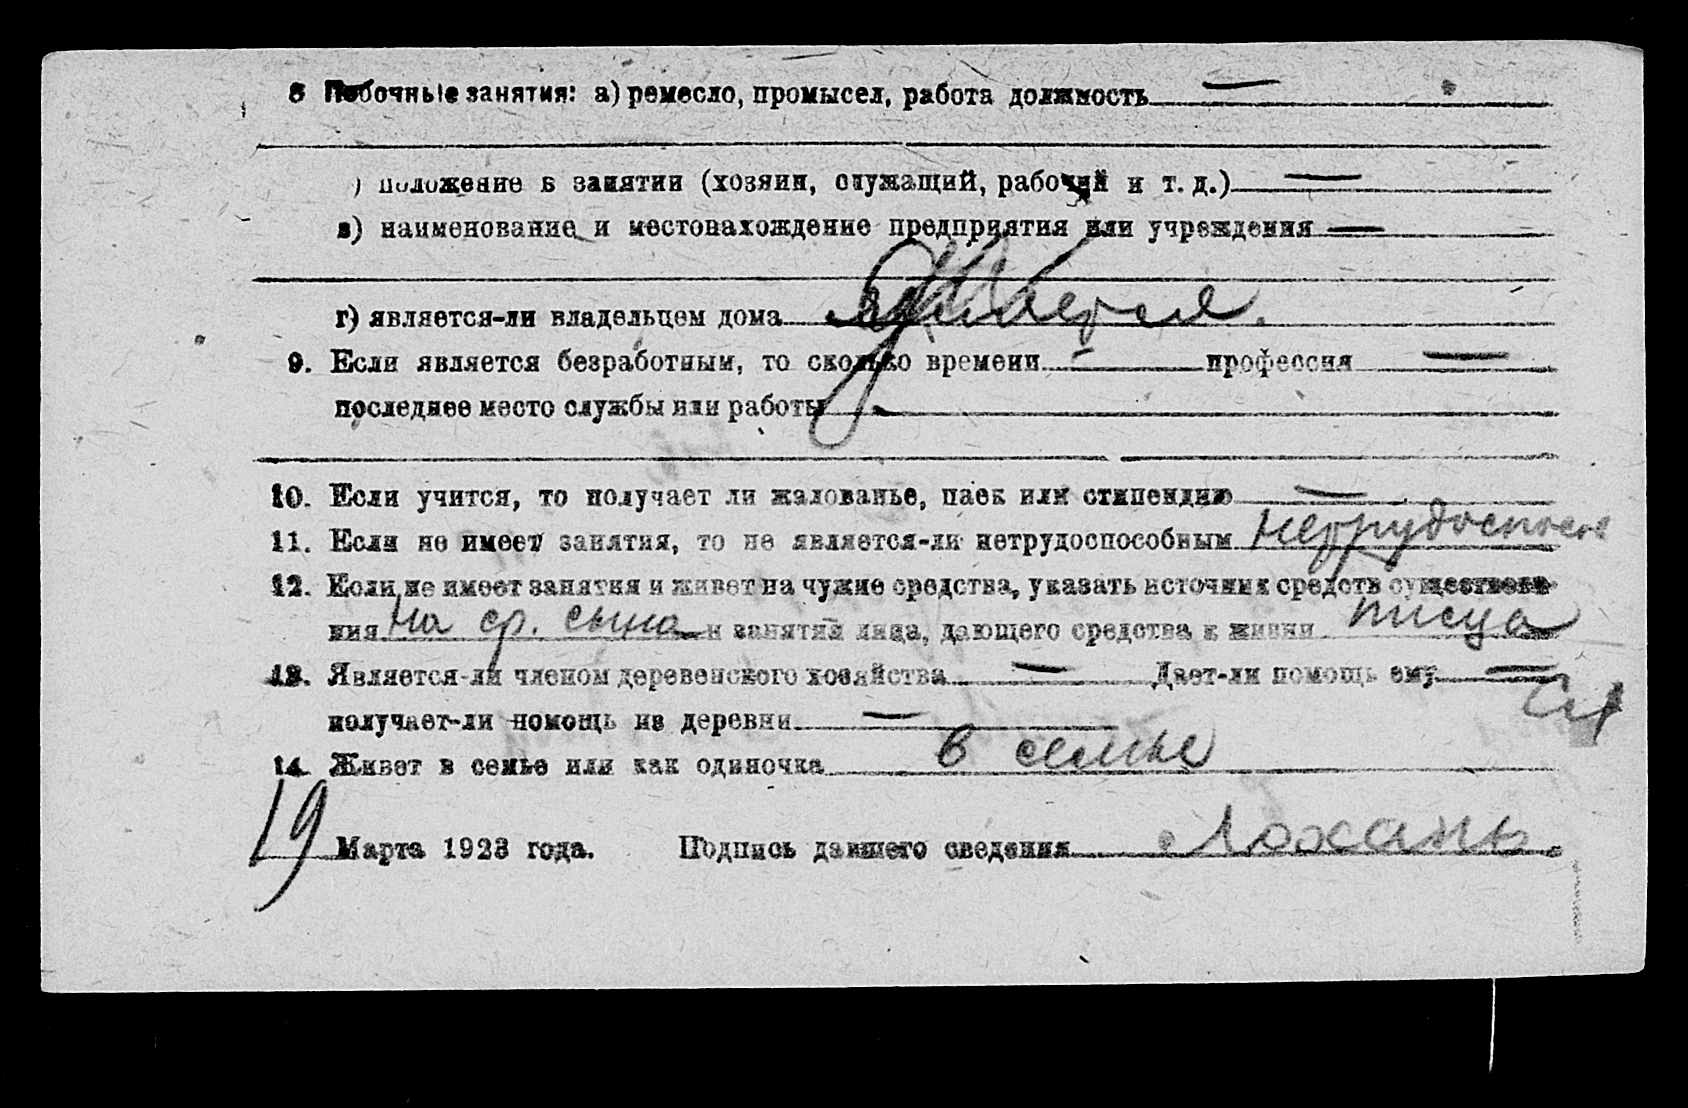 8 Побочные занятия: а) ремесло, промысел, работа должность —
) положение в занятии (хозяин, служащий, рабочий и т. д.) —
в) наименование и местонахождение предприятия или учреждения —
г) является-ли владельцем дома
9. Если является безработным, то сколько времени — профессия —
последнее место службы или работы
10. Если учится, то получает ли жалованье, паек или стипендию —
11. Если не имеет занятия, то не является-ли нетрудоспособным нетрудоспособ
12. Если не имеет занятия и живет на чужие средства, указать источник средств существова-
ния на ср. сына и занятия лица, дающего средства к жизни писца
13. Является-ли членом деревенского хозяйства — Дает-ли помощь ему —
получает-ли помощь из деревни —
14. Живет в семье или как одиночка в семье
19 Марта 1923 года. Подпись давшего сведения Лохань